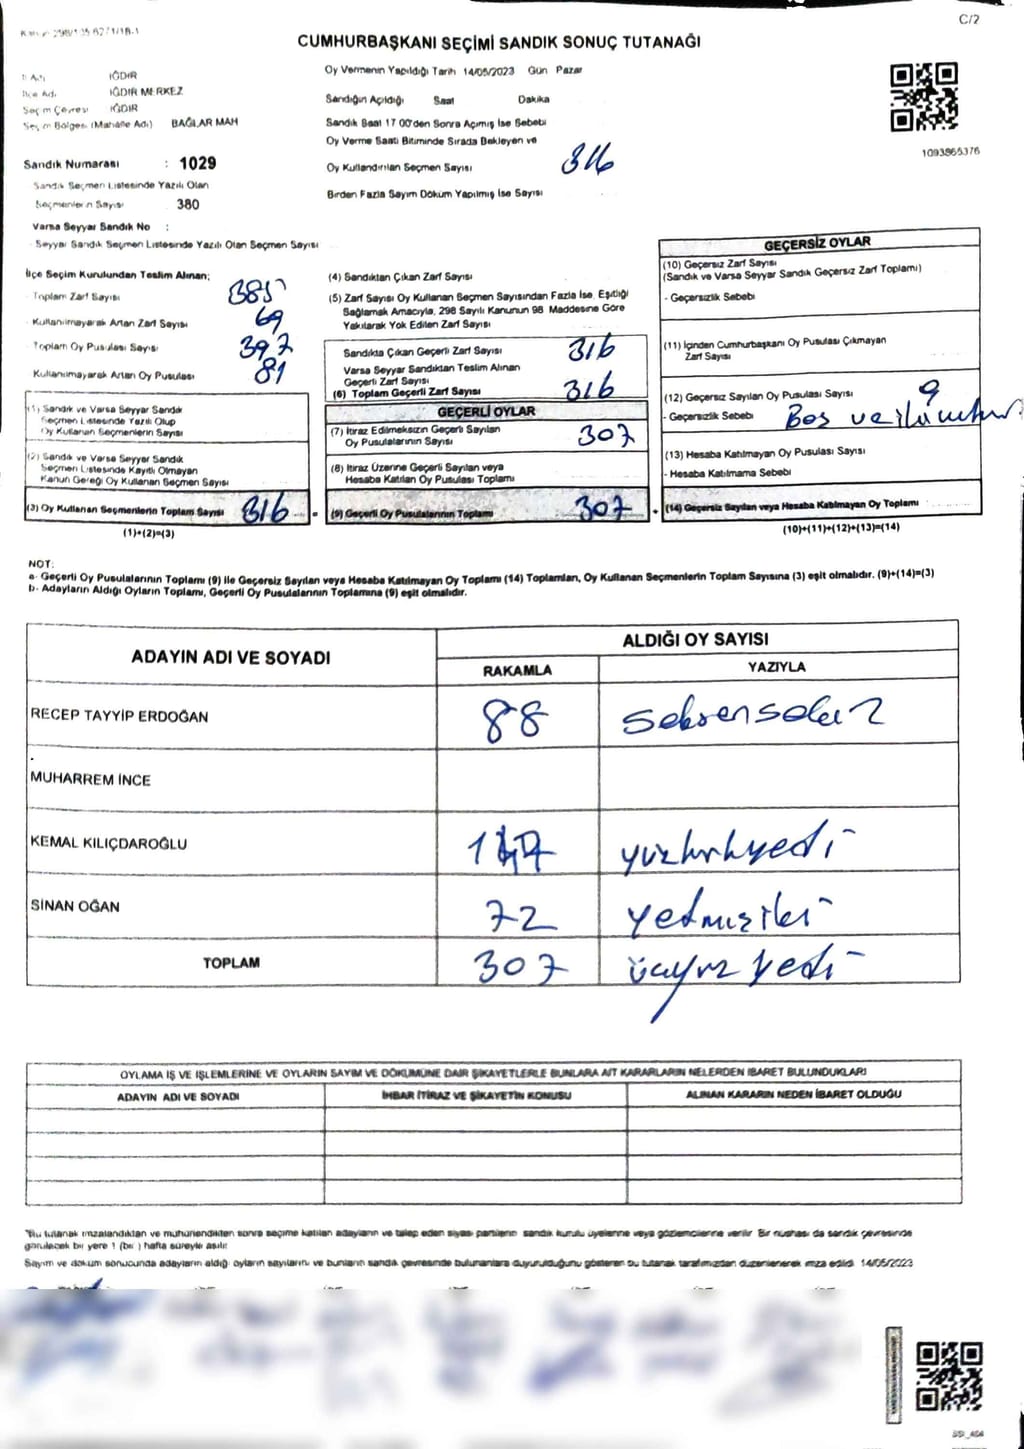 C/2
CUMHURBAŞKANI SEÇİMİ SANDIK SONUÇ TUTANAĞI
İl Adı IĞDIR
İlçe Adı IĞDIR MERKEZ
Seçim Çevresi IĞDIR
Seçim Bölgesi (Mahalle Adı) BAĞLAR MAH
Sandık Numarası : 1029
Sandık Seçmen Listesinde Yazılı Olan
Seçmenlerin Sayısı 380
Varsa Seyyar Sandık No :
- Seyyar Sandık Seçmen Listesinde Yazılı Olan Seçmen Sayısı
Oy Vermenin Yapıldığı Tarih 14/05/2023 Gün Pazar
Sandığın Açıldığı Saat Dakika
Sandık Saat 17 00'den Sonra Açımış İse Sebebi
Oy Verme Saati Bitiminde Sırada Bekleyen ve
Oy Kullandırılan Seçmen Sayısı 316
Birden Fazla Sayım Döküm Yapılmış İse Sayısı
1093865376
İlçe Seçim Kurulundan Teslim Alınan;
- Toplam Zarf Sayısı 385
- Kullanılmayarak Artan Zarf Sayısı 69
- Toplam Oy Pusulası Sayısı 397
Kullanılmayarak Artan Oy Pusulası 81
(1) Sandık ve Varsa Seyyar Sandık
Seçmen Listesinde Yazılı Olup
Oy Kullanan Seçmenlerin Sayısı
(2) Sandık ve Varsa Seyyar Sandık
Seçmen Listesinde Kayıtlı Olmayan
Kanun Gereği Oy Kullanan Seçmen Sayısı
(3) Oy Kullanan Seçmenlerin Toplam Sayısı 316
(1)+(2)=(3)
(4) Sandıktan Çıkan Zarf Sayısı
(5) Zarf Sayısı Oy Kullanan Seçmen Sayısından Fazla İse, Eşitliği
Sağlamak Amacıyla, 298 Sayılı Kanunun 98 Maddesine Göre
Yakılarak Yok Edilen Zarf Sayısı
Sandıkta Çıkan Geçerli Zarf Sayısı 316
Varsa Seyyar Sandıktan Teslim Alınan
Geçerli Zarf Sayısı
(6) Toplam Geçerli Zarf Sayısı 316
GEÇERLİ OYLAR
(7) İtiraz Edilmeksizin Geçerli Sayılan
Oy Pusulalarının Sayısı 307
(8) İtiraz Üzerine Geçerli Sayılan veya
Hesaba Katılan Oy Pusulası Toplamı
(9) Geçerli Oy Pusulalarının Toplamı 307
GEÇERSİZ OYLAR
(10) Geçersiz Zarf Sayısı
(Sandık ve Varsa Seyyar Sandık Geçersız Zarf Toplamı)
- Geçersizlik Sebebi
(11) İçinden Cumhurbaşkanı Oy Pusulası Çıkmayan
Zarf Sayısı
(12) Geçersiz Sayılan Oy Pusulası Sayısı 9
- Geçersizlik Sebebi Boş
(13) Hesaba Katılmayan Oy Pusulası Sayısı
- Hesaba Katılmama Sebebi
(14) Geçersiz Sayılan veya Hesaba Katılmayan Oy Toplamı
(10)+(11)+(12)+(13)=(14)
NOT:
a- Geçerli Oy Pusulalarının Toplamı (9) ile Geçersiz Sayılan veya Hesaba Katılmayan Oy Toplamı (14) Toplamları, Oy Kullanan Seçmenlerin Toplam Sayısına (3) eşit olmalıdır. (9)+(14)=(3)
b- Adayların Aldığı Oyların Toplamı, Geçerli Oy Pusulalarının Toplamına (9) eşit olmalıdır.
ADAYIN ADI VE SOYADI ALDIĞI OY SAYISI
RAKAMLA YAZIYLA
RECEP TAYYİP ERDOĞAN 88 seksensekiz
MUHARREM İNCE
KEMAL KILIÇDAROĞLU 147 yüzkırkyedi
SİNAN OĞAN 72 yetmişiki
TOPLAM 307 üçyüz yedi
OYLAMA İŞ VE İŞLEMLERİNE VE OYLARIN SAYIM VE DÖKÜMÜNE DAİR ŞİKAYETLERLE BUNLARA AİT KARARLARIN NELERDEN İBARET BULUNDUKLARI
ADAYIN ADI VE SOYADI İHBAR İTİRAZ VE ŞİKAYETİN KONUSU ALINAN KARARIN NEDEN İBARET OLDUĞU
*Bu tutanak imzalandıktan ve mühürlendikten sonra seçime katılan adayların ve talep eden siyasi partilerin sandık kurulu üyelerine veya gözlemcilerine verilir. Bir nüshası da sandık çevresinde
görülecek bir yere 1 (bir) hafta süreyle asılır
Sayım ve döküm sonucunda adayların aldığı oyların sayılarını ve bunların sandık çevresinde bulunanlara duyurulduğunu gösteren bu tutanak tarafımızdan düzenlenerek imza edildi. 14/05/2023